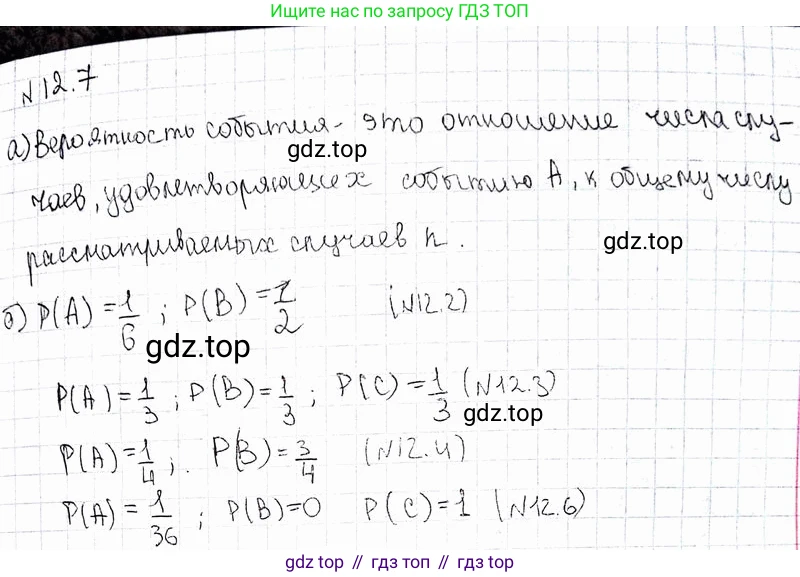 Ищите нас по запросу ГДЗ ТОП
N 12.7
а) Вероятность события - это отношение числа слу-
gdz.top
чаев, удовлетворяющих событию A, к общему числу
рассматриваемых случаев n.
gdz.top
б) P(A) = 1/6 ; P(B) = 1/2 (N12.2)
gdz.top
P(A) = 1/3 ; P(B) = 1/3 ; P(C) = 1/3 (N12.3)
gdz.top
P(A) = 1/4 ; P(B) = 3/4 (N12.4)
P(A) = 1/36 ; P(B) = 0 P(C) = 1 (N12.6)
gdz.top // гдз топ // гдз.top